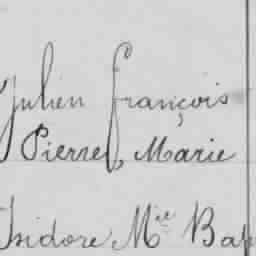 Julien françois
Pierre, Marie
Isidore, Mie Bap